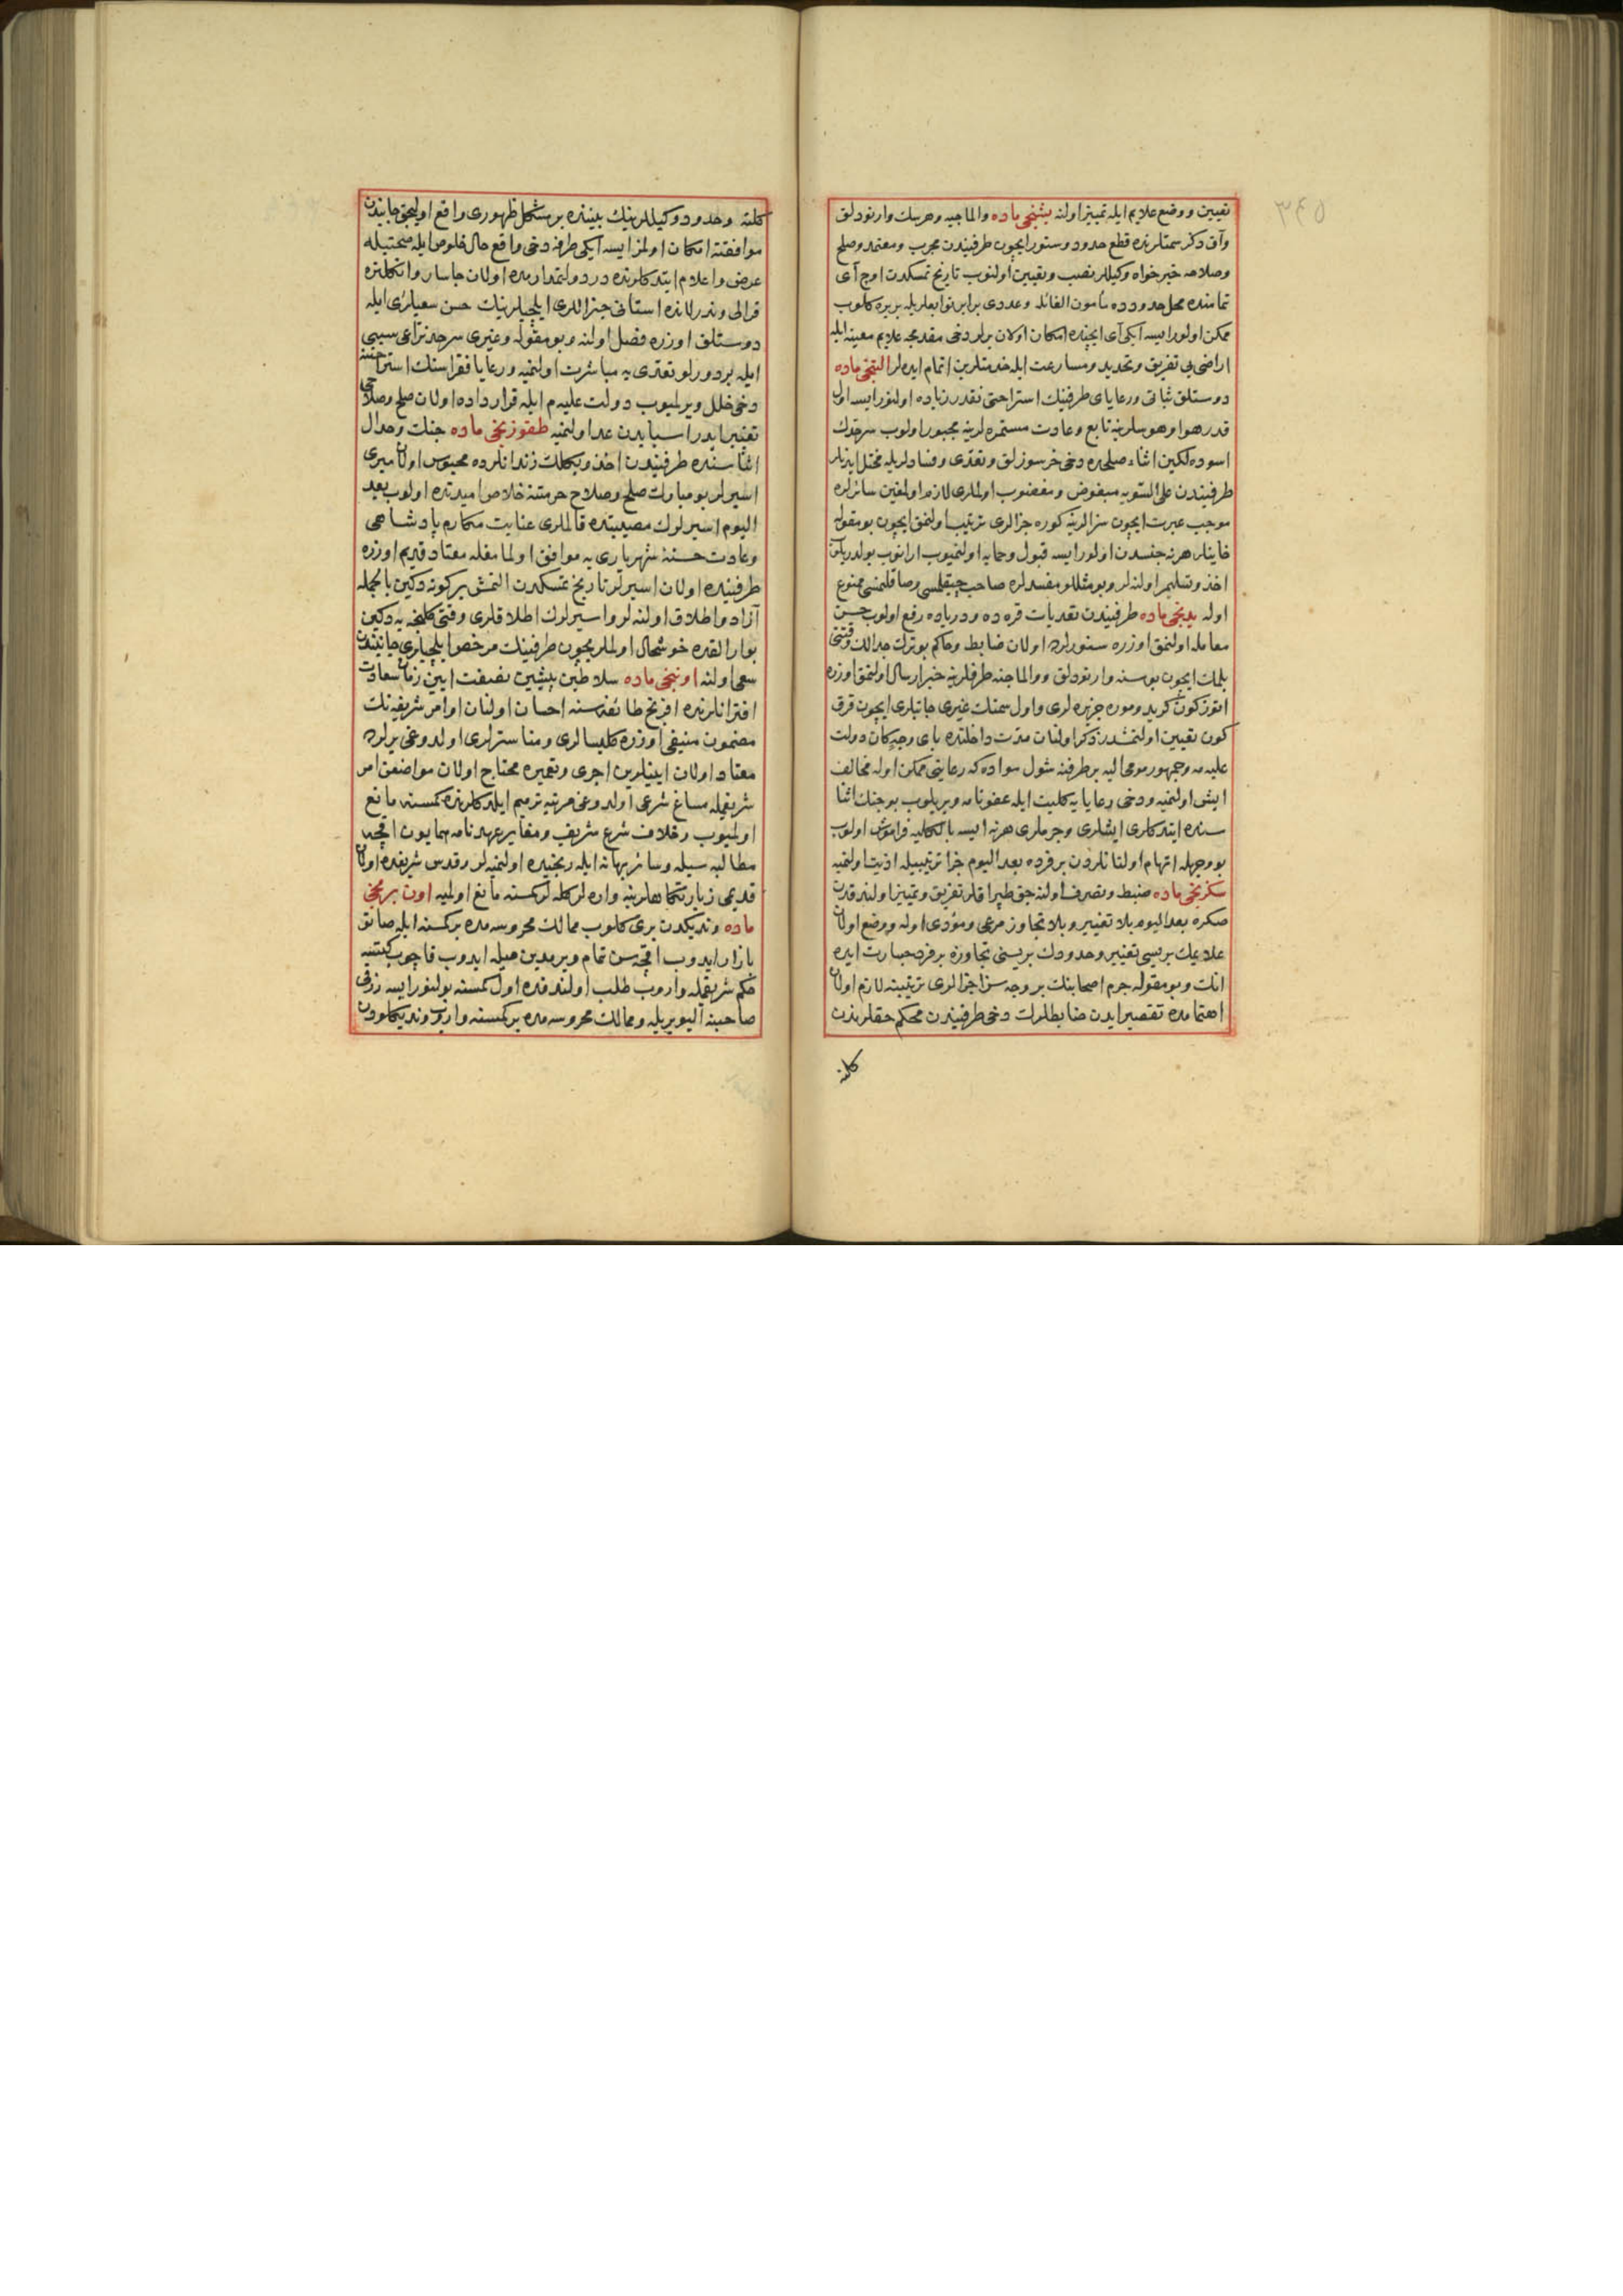 ٣٤٥
تعیین و وضع علایم ایله تمییز اولنه بشنجی ماده والماجیه وهرسك وارنودلق
وآق دکز سمتلرنده قطع حدود وسنور ایچون طرفیندن مجرب ومعتمد وصلح
وصلاحه خیرخواه وکیللر نصب وتعیین اولنوب تاریخ تمسکدن اوچ آی
تمامنده محل حدودده مأمون الغائله وعددی برابر توابعلریله بریره کلوب
ممکن اولورایسه ایکی آی ایچنده امکان اولان یرلر دخی مقدمجه علایم معینه ایله
اراضی یی تفریق وتحدید ومسارعت ایله خدمتلرین اتمام ایده لر التنجی ماده
دوستلق ثباتی ورعایای طرفینك استراحتی نقدر زیاده اولنورایسه اول
قدر هوا وهوسلرینه تابع وعادت مستمره لرینه مجبور اولوب سرحدك
اسوده لکین اثناء صلحده دخی خرسوزلق وتعدی وفسادلریله مختل ایدنلر
طرفیندن علی السویه مبغوض ومغضوب اولملری لازم اولمغین سائرلره
موجب عبرت ایچون سزالرینه کوره جزالری ترتیب اولنمق ایچون بومقوله
خاینلر هرنه جنسدن اولورایسه قبول وحمایه اولنمیوب ارانوب بولدریلوب
اخذ وتسلیم اولنه لر وبومثللو مفسدلره صاحب چیقلمسی وصاقلنمسی ممنوع
اوله یدنجی ماده طرفیندن تعدیات قره ده ودریاده رفع اولوب حسن
معامله اولنمق اوزره سنورلرده اولان ضابط وحاکم بو ترك جدالك وقتنی
بلمك ایچون بوسنه وارنودلق ووالماجیه طرفلرینه خبر ارسال اولنمق اوزره
اوتوز کون کرید وموره جزیره لری واول سمتك غیری جانبلری ایچون قرق
کون تعیین اولنمشدر ذکر اولنان مدت داخلنده بای وجه کان دولت
علیه مه وجمهور مومی الیه بر طرفنه شول سواده که رعایتی ممکن اوله مخالف
ایش اولنمیه ودخی رعایایه کلیت ایله عفونامه ویریلوب بو جنك اثنا
سنده ایتدکلری ایشلری وجرملری هرنه ایسه بالکلیه فراموش اولوب
بو وجهله اتهام اولنانلردن برفرده بعد الیوم جزا ترتیبیله اذیت اولنمیه
سکزنجی ماده ضبط وتصرف اولنه جق طپراقلر تفریق وتمییز اولندقدن
صکره بعد الیوم بلا تغییر وبلا تجاوز مرعی ومؤدی اوله ووضع اولنان
علایمك بریسی تغییر وحدودك بریسنی تجاوزه برفرد جسارت ایده
انك وبومقوله جرم اصحابنك بر وجه سزا جزالری ترتیبنه لازم اولان
اهتمامده تقصیر ایدن ضابطلرك دخی طرفیندن محکم حقلرندن
کلنه
کلنه وحدود وکیللرینك بیننده بر مشکل ظهوری واقع اولیجق جانبیندن
موافقتنه امکان اولمز ایسه ایکی طرفه دخی واقع حال خلوص ایله صحتیله
عرض واعلام ایتدکلرنده در دولتمدارمده اولان چاسار وانکلتره
قرالی وندرلانده استاتی جنراللری ایلچیلرینك حسن سعیلری ایله
دوستلق اوزره فصل اولنه وبومقوله وغیری سرحد نزاعی سببی
ایله بر دورلو تعدی یه مباشرت اولنمیه ورعایا فقراسنك استراحتنه
دخی خلل ویرلمیوب دولت علیه م ایله قرارداده اولان صلح وصلاحی
تغییر ایدر اسبابدن عد اولنمیه طقوزنجی ماده جنك وجدال
اثناسنده طرفیندن اخذ وبکلك زندانلرده محبوس اولان میری
اسیرلر بو مبارك صلح وصلاح حرمتنه خلاص امیدنده اولوب بعد
الیوم اسیرلك مصیبتنده قالملری عنایت مکارم پادشاهی
وعادت حسنهٔ شهریاری یه موافق اولمامغله معتاد قدیم اوزره
طرفینده اولان اسیرلر تاریخ تمسکدن التمش بر کونه دکین بالجمله
آزاد واطلاق اولنه لر واسیرلرك اطلاقلری وقتی کلنجه یه دکین
بوارالقده خوشحال اولملریچون طرفینك مرخص ایلچیلری جانبندن
سعی اولنه اوننجی ماده سلاطین پیشین نصفت ایین زمان سعادت
اقترانلرنده افرنج طائفه سنه احسان اولنان اوامر شریفه نك
مضمون منیفی اوزره کلیسالری ومناسترلری اولدوغی یرلرده
معتاد اولان ایینلرین اجری وتعمیره محتاج اولان مواضعن امر
شریفمله مساغ شرعی اولدوغی مرتبه ترمیم ایلدکلرنده کمسنه مانع
اولمیوب وخلاف شرع شریف ومغایر عهدنامه همایون اقچه
مطالبه سیله وسائر بهانه ایله رنجیده اولنمیه لر وقدس شریفده اولان
قدیمی زیارتکاهلرینه واره لر کله لر کمسنه مانع اولمیه اون برنجی
ماده وندیکدن بری کلوب ممالك محروسه مده برکمسنه ایله صاتو
بازار ایدوب اقچه سن تمام ویرمدین حیله ایدوب قاچوب کیتسه
حکم شریفمله واروب طلب اولندقده اول کمسنه بولنورایسه رزقی
صاحبنه الیویریله وممالك محروسه مده برکمسنه واروب وندیکلودن